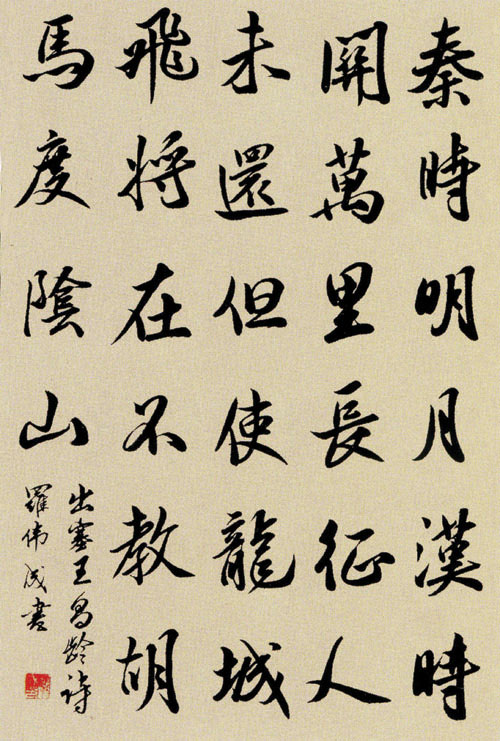 秦時明月漢時
關萬里長征人
未還但使龍城
飛將在不教胡
馬度陰山
出塞王昌龄诗
羅伟成書